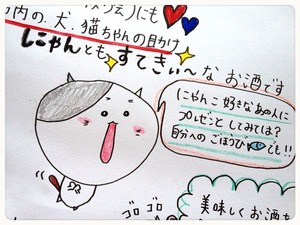 内の、犬、猫ちゃんの目かけ
にゃんとも すてきぃ〜なお酒です
にゃんこ好きなあの人に
プレゼントとしてみては?
自分へのごほうびにも!!
ゴロ
ゴロ
美味しくお酒を